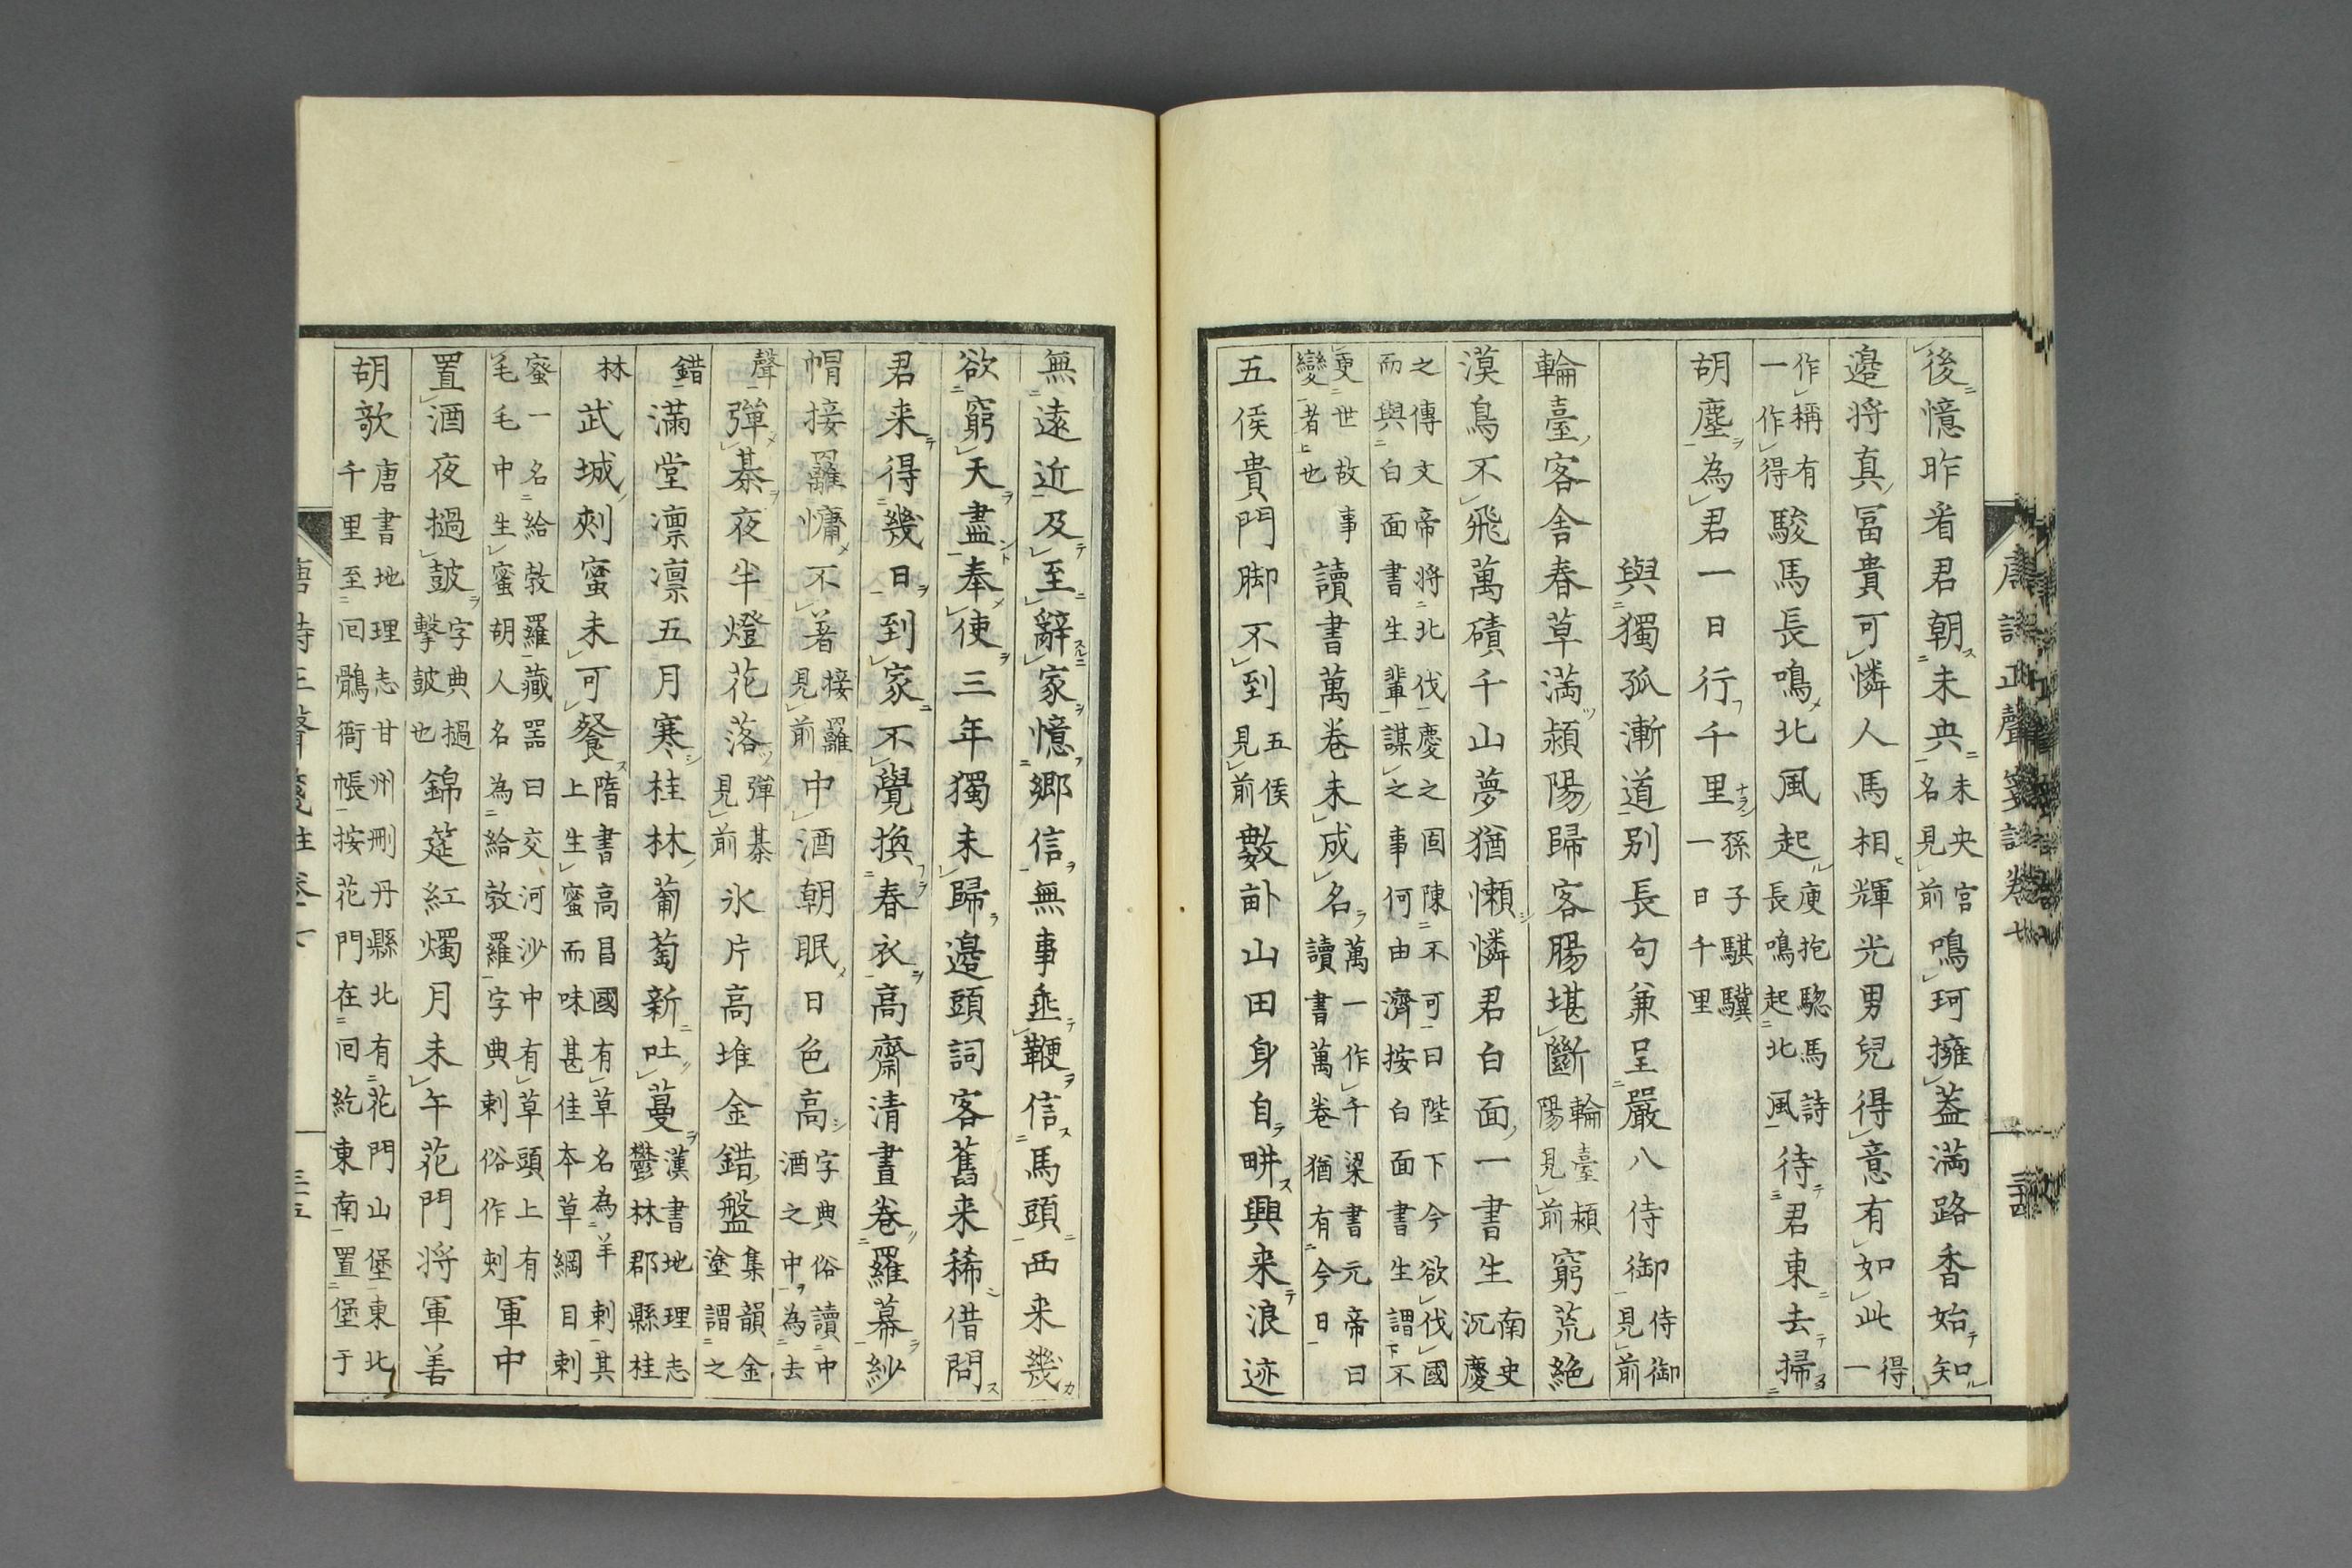 唐詩正聲箋註卷七
後憶昨㸔君朝未央未央宮名見前鳴珂擁蓋滿路香始知
邉将真冨貴可憐人馬相輝光男兒得意有如此得一
作稱有一作得駿馬長鳴北風起庾抱驄馬詩長鳴起北風待君東去掃
胡塵為君一日行千里孫子騏驥一日千里
與獨孤漸道别長句兼呈嚴八侍御侍御見前
輪臺客舎春草満潁陽歸客腸堪斷輪臺潁陽見前窮荒絶
漠鳥不飛萬磧千山夢猶懶憐君白面一書生南史沉慶
之傳文帝将北伐慶之固陳不可曰陛下今欲伐國而與白面書生輩謀之事何由濟按白面書生謂不
更世故事變者也讀書萬卷未成名萬一作千梁書元帝曰讀書萬卷猶有今日
五侯貴門脚不到五侯見前數畝山田身自畊興来浪迹
無遠近及至辭家憶郷信無事垂鞭信馬頭西来幾
欲窮天盡奉使三年獨未歸邉頭詞客舊来稀借問
君来得幾日到家不覺換春衣高齋清晝卷羅幕紗
帽接䍦慵不著接䍦見前中酒朝眠日色高字典俗讀中酒之中為去
聲彈棊夜半燈花落彈棊見前氷片高堆金錯盤集韻金塗謂之
錯滿堂凛凛五月寒桂林葡萄新吐蔓漢書地理志鬱林郡縣桂
林武城刾蜜未可餐隋書高昌國有草名為羊刺其上生蜜而味甚佳本草綱目刺
蜜一名給敦羅藏噐曰交河沙中有草頭上有毛毛中生蜜胡人名為給敦羅字典刺俗作刾軍中
置酒夜撾鼓字典撾擊鼓也錦筵紅燭月未午花門将軍善
胡歌唐書地理志甘州刪丹縣北有花門山堡東北千里至囘鶻衙帳按花門在囘紇東南置堡于